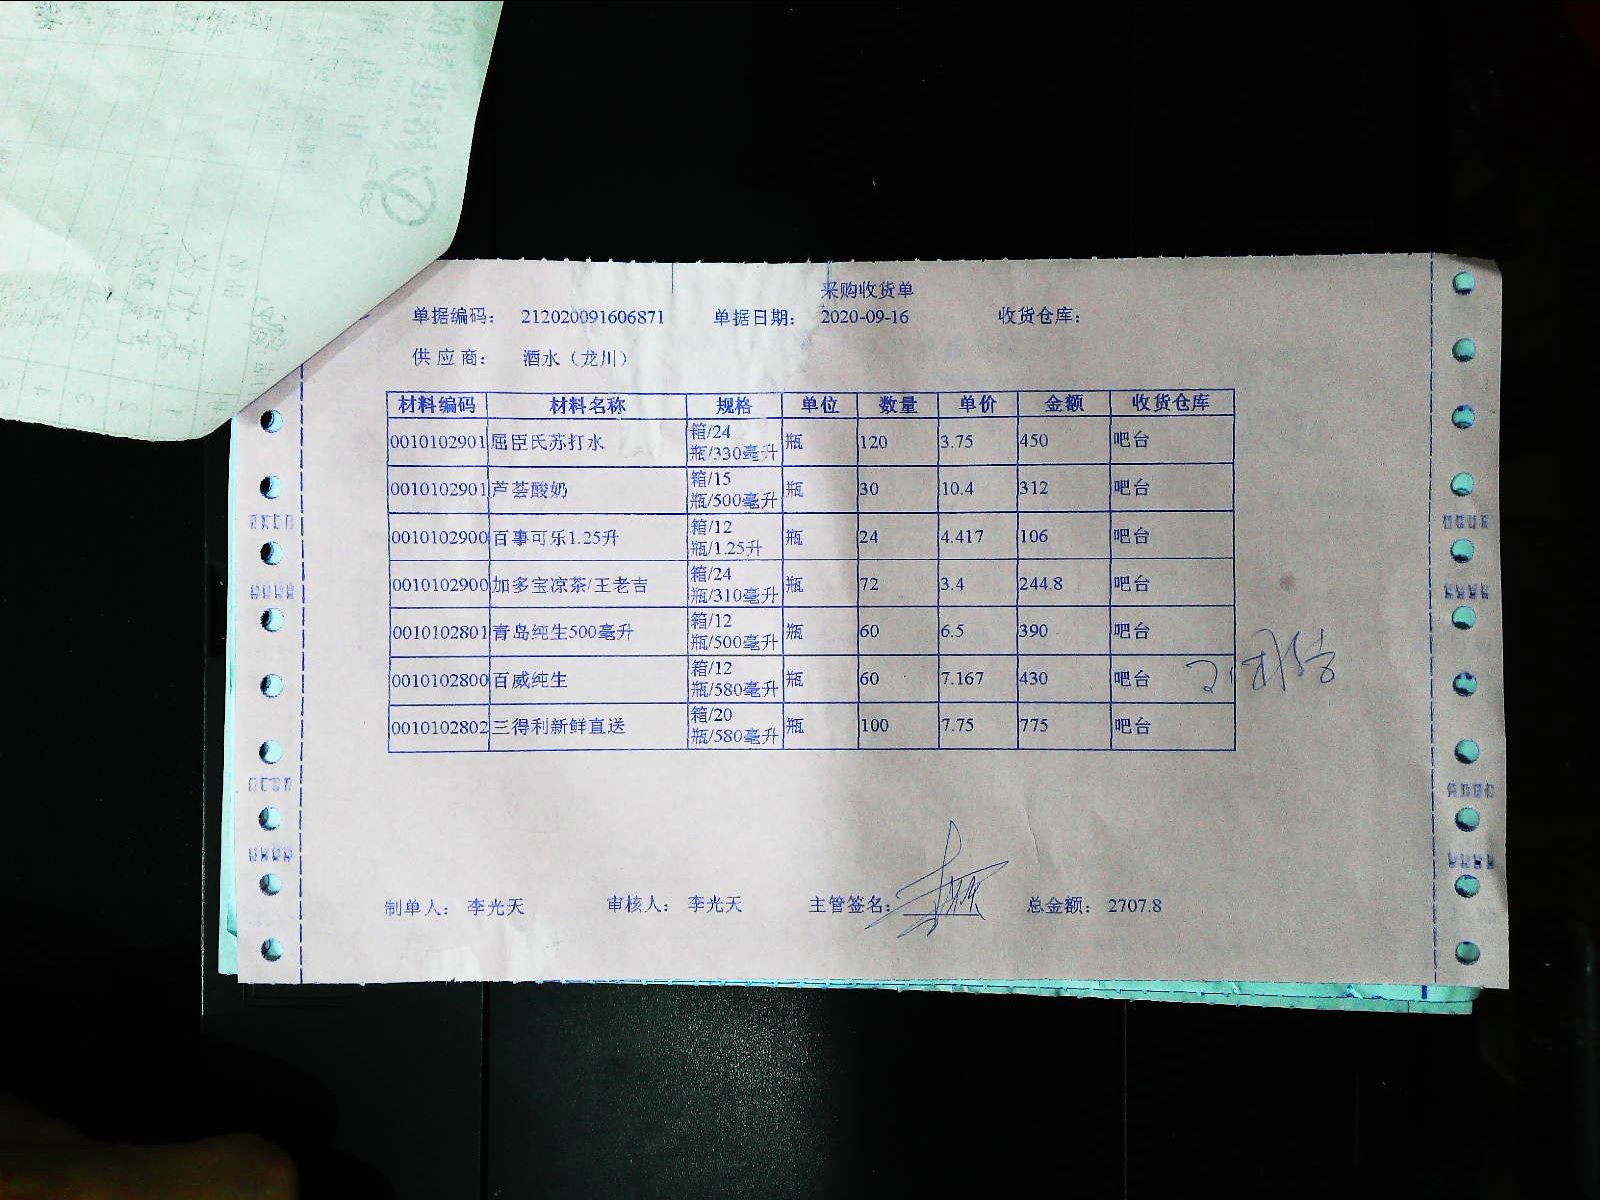 采购收货单
单据编码： 212020091606871 单据日期： 2020-09-16 收货仓库：
供 应 商： 酒水（龙川）
材料编码 材料名称 规格 单位 数量 单价 金额 收货仓库
0010102901 屈臣氏苏打水 箱/24瓶/330毫升 瓶 120 3.75 450 吧台
0010102901 芦荟酸奶 箱/15瓶/500毫升 瓶 30 10.4 312 吧台
0010102900 百事可乐1.25升 箱/12瓶/1.25升 瓶 24 4.417 106 吧台
0010102900 加多宝凉茶/王老吉 箱/24瓶/310毫升 瓶 72 3.4 244.8 吧台
0010102801 青岛纯生500毫升 箱/12瓶/500毫升 瓶 60 6.5 390 吧台
0010102800 百威纯生 箱/12瓶/580毫升 瓶 60 7.167 430 吧台
0010102802 三得利新鲜直送 箱/20瓶/580毫升 瓶 100 7.75 775 吧台
制单人： 李光天 审核人： 李光天 主管签名： 总金额： 2707.8